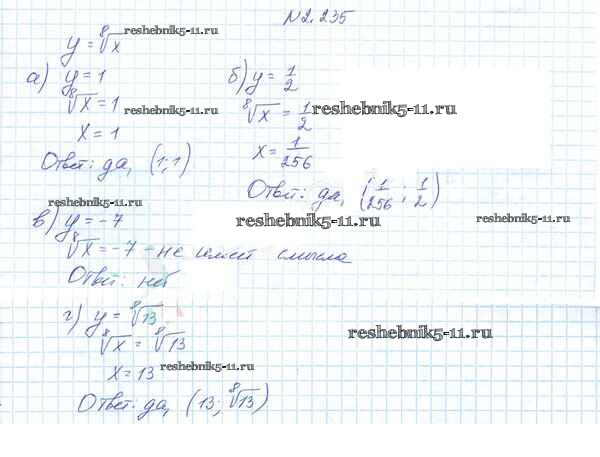 №2.235
y = ⁸√x reshebnik5-11.ru
а) y = 1
⁸√x = 1 reshebnik5-11.ru
x = 1
Ответ: да, (1;1)
б) y = 1/2
⁸√x = 1/2 reshebnik5-11.ru
x = 1/256
Ответ: да, (1/256; 1/2)
reshebnik5-11.ru
в) y = -7 reshebnik5-11.ru reshebnik5-11.ru
⁸√x = -7 - не имеет смысла
Ответ: нет
г) y = ⁸√13
⁸√x = ⁸√13 reshebnik5-11.ru
x = 13 reshebnik5-11.ru
Ответ: да, (13; ⁸√13)